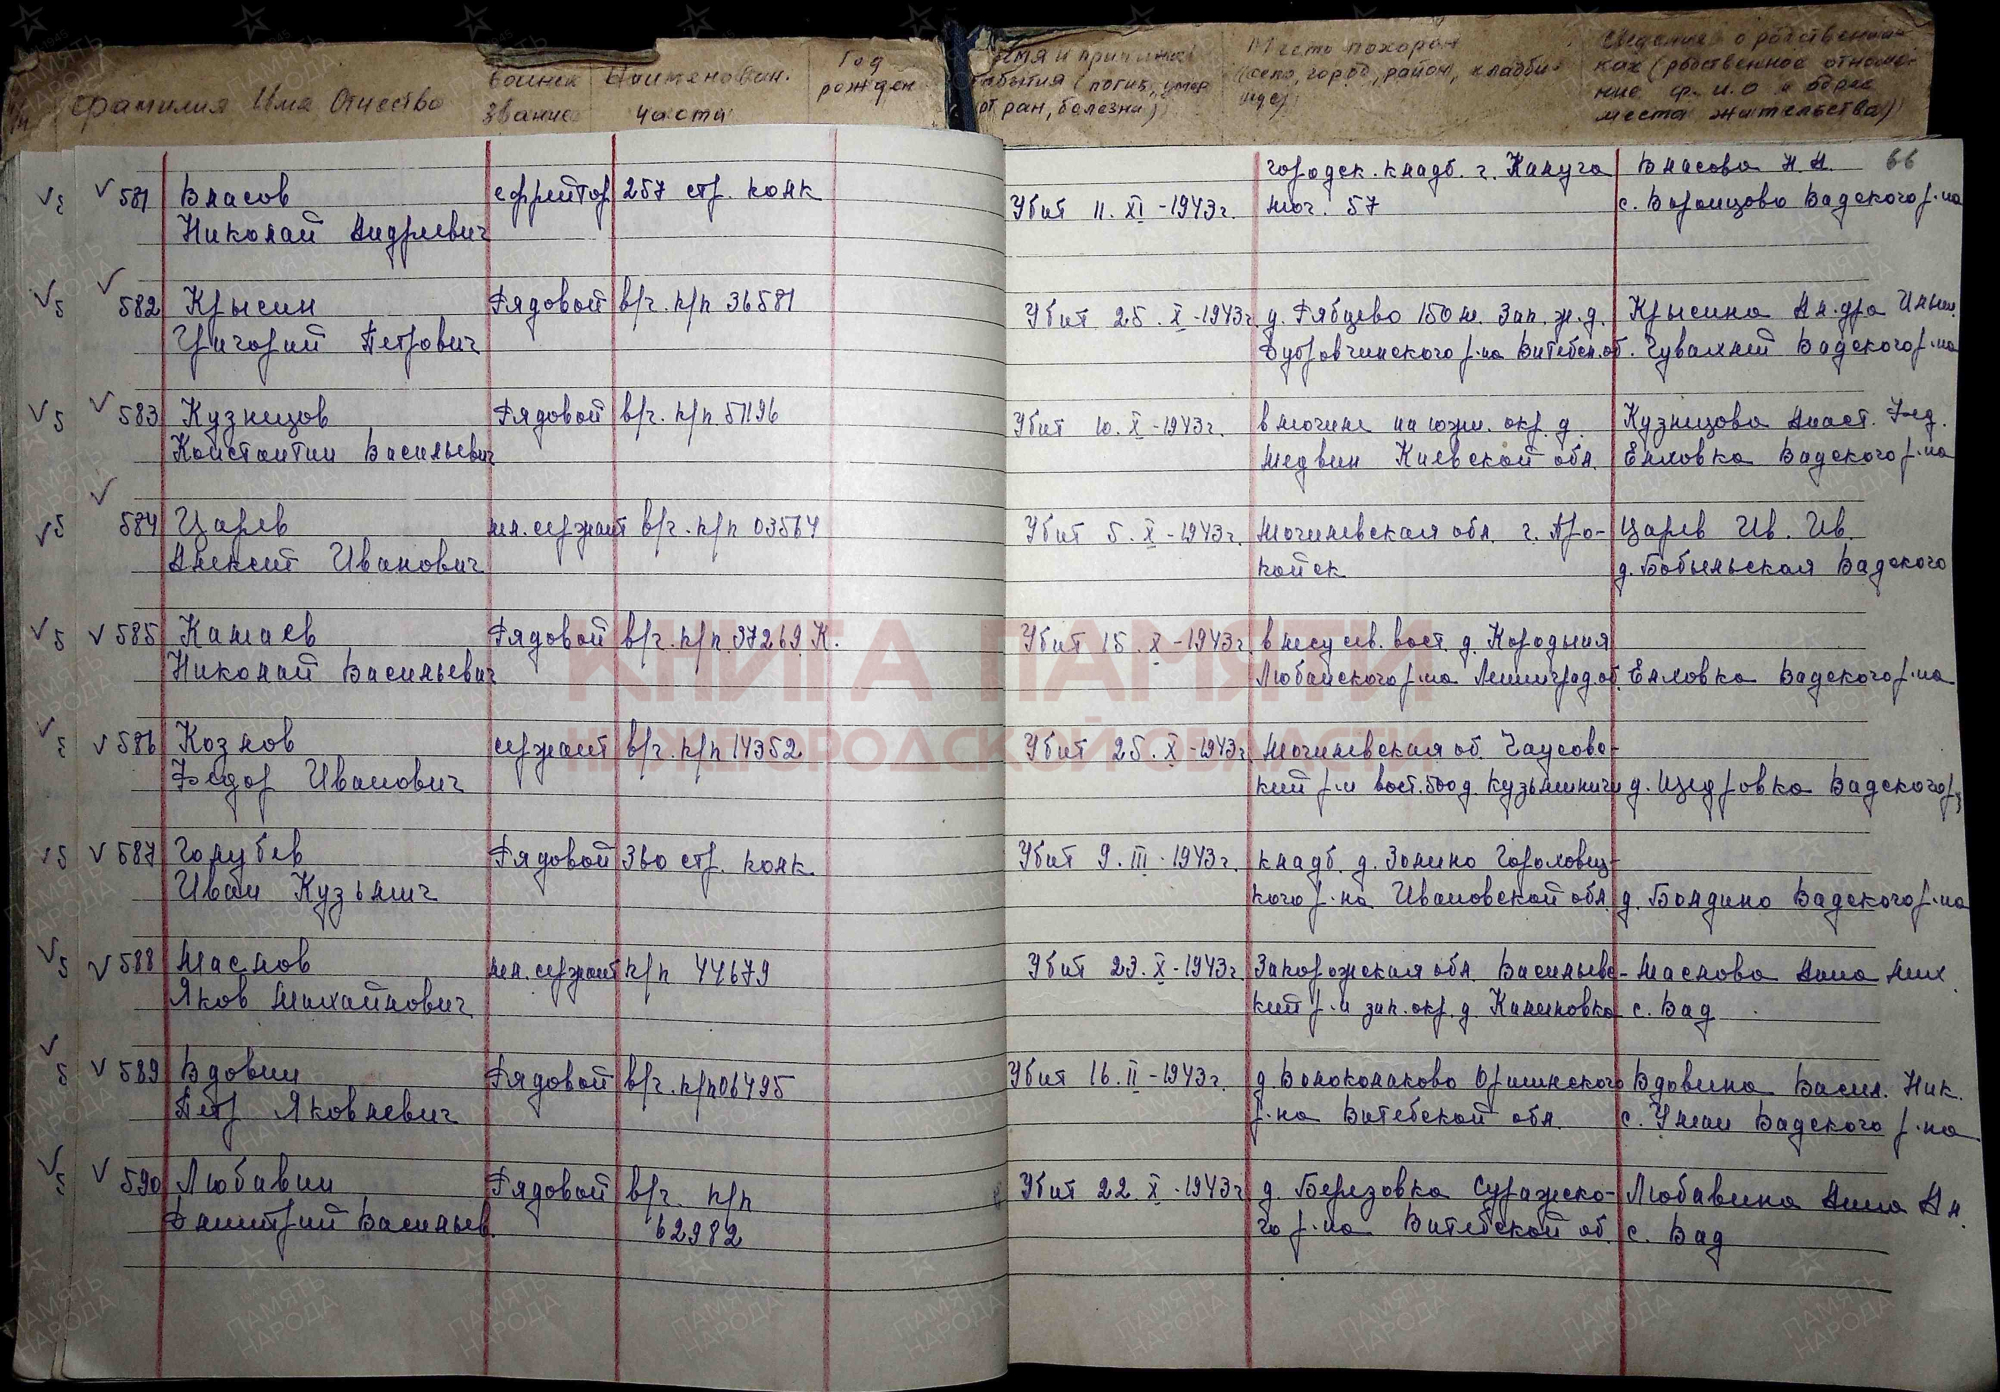 Фамилия Имя Отчество
Воинск звание
Наименован. части
Год рожден
Время и причина события (погиб, умер от ран, болезни)
Место похорон (село, город, район, кладбище)
Сведения о родственниках (родственное отношение ф.и.о и адрес места жительства)
66
581 Власов ефрейтор 257 стр. полк Убит 11.XI-1943г. городск. кладб. г. Калуга Власова
Николай Андреевич мог. 57 с. Воронцово Вадского р-на
582 Крысин Рядовой в/ч. п/п 36581 Убит 25.X-1943г. д. Рябцево 150 м. Зап. ж.д. Крысина Ал-дра Ильин.
Григорий Петрович Дубровненского р-на Витебск. об. Чувахлей Вадского р-на
583 Кузнецов Рядовой в/ч. п/п 51196 Убит 10.X-1943г. в могиле на южн. окр. д. Кузнецова Анаст. Фед.
Константин Васильевич Медвин Киевской обл. Елховка Вадского р-на
584 Царев мл. сержант в/ч. п/п 03564 Убит 5.X-1943г. Могилевская обл. г. Про- Царев Ив. Ив.
Алексей Иванович пойск д. Бобыльская Вадского
585 Камаев Рядовой в/ч. п/п 97269 К. Убит 15.X-1943г. в лесу сев. вост. д. Кородыня
Николай Васильевич Любанского р-на Ленинград об. Елховка Вадского р-на
586 Козлов сержант в/ч. п/п 14352 Убит 25.X-1943г. Могилевская об. Чаусовс-
Федор Иванович кий р-н вост. 500 д. Кузьминичи д. Щедровка Вадского р.
587 Голубев Рядовой 360 стр. полк Убит 9.III.1943г. кладб. д. Золино Гороховец-
Иван Кузьмич кого р-на Ивановской обл. д. Болдино Вадского р-на
588 Маслов мл. сержант п/п 44679 Убит 29.X-1943г. Запорожская обл. Васильевс- Маслова Анна Мих.
Яков Михайлович кий р-н зап. окр. д. Калиновка с. Вад
589 Вдовин Рядовой в/ч. п/п 06495 Убит 16.II-1943г. д. Волоколаково Оршинского Вдовина Васил. Ник.
Петр Яковлевич р-на Витебской обл. с. Умай Вадского р-на
590 Любавин Рядовой в/ч. п/п Убит 22.X.1943г д. Березовка Суражско- Любавина Анна Ал.
Дмитрий Васильев. 62982 го р-на Витебской об. с. Вад
КНИГА ПАМЯТИ
НИЖЕГОРОДСКОЙ ОБЛАСТИ
ПАМЯТЬ НАРОДА